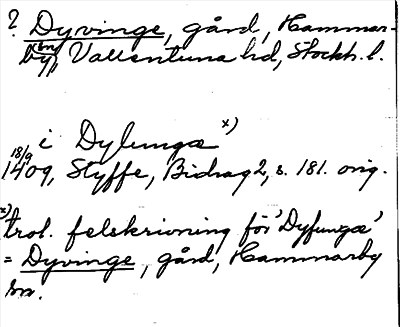 ? Dyvinge, gård, Hammar-
by sn, Vallentuna hd, Stockh. l.
i Dylungæ x)
18/9
1409, Styffe, Bidrag 2, s. 181. orig.
x) trol. felskrivning för 'Dyfungæ'
= Dyvinge, gård, Hammarby
sn.